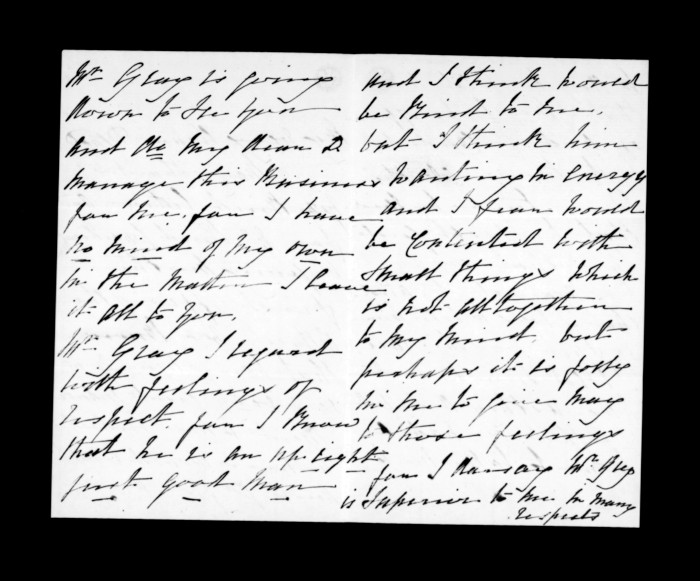 Mr Gray is going
down to see you
and do my dear D.
manage this business
for me. for I have
no mind of my own
in the matter I leave
it all to you.
Mr Gray I regard
with feelings of
respect. for I know
that he is an upright
just good man
and I think would
be kind to me.
but I think him
wanting in energy
and I fear would
be contented with
small things which
is not alltogether
to my mind. but
perhaps it is folly
in me to give way
to those feelings
for I daresay Mr Gray
is superior to me in many
respects